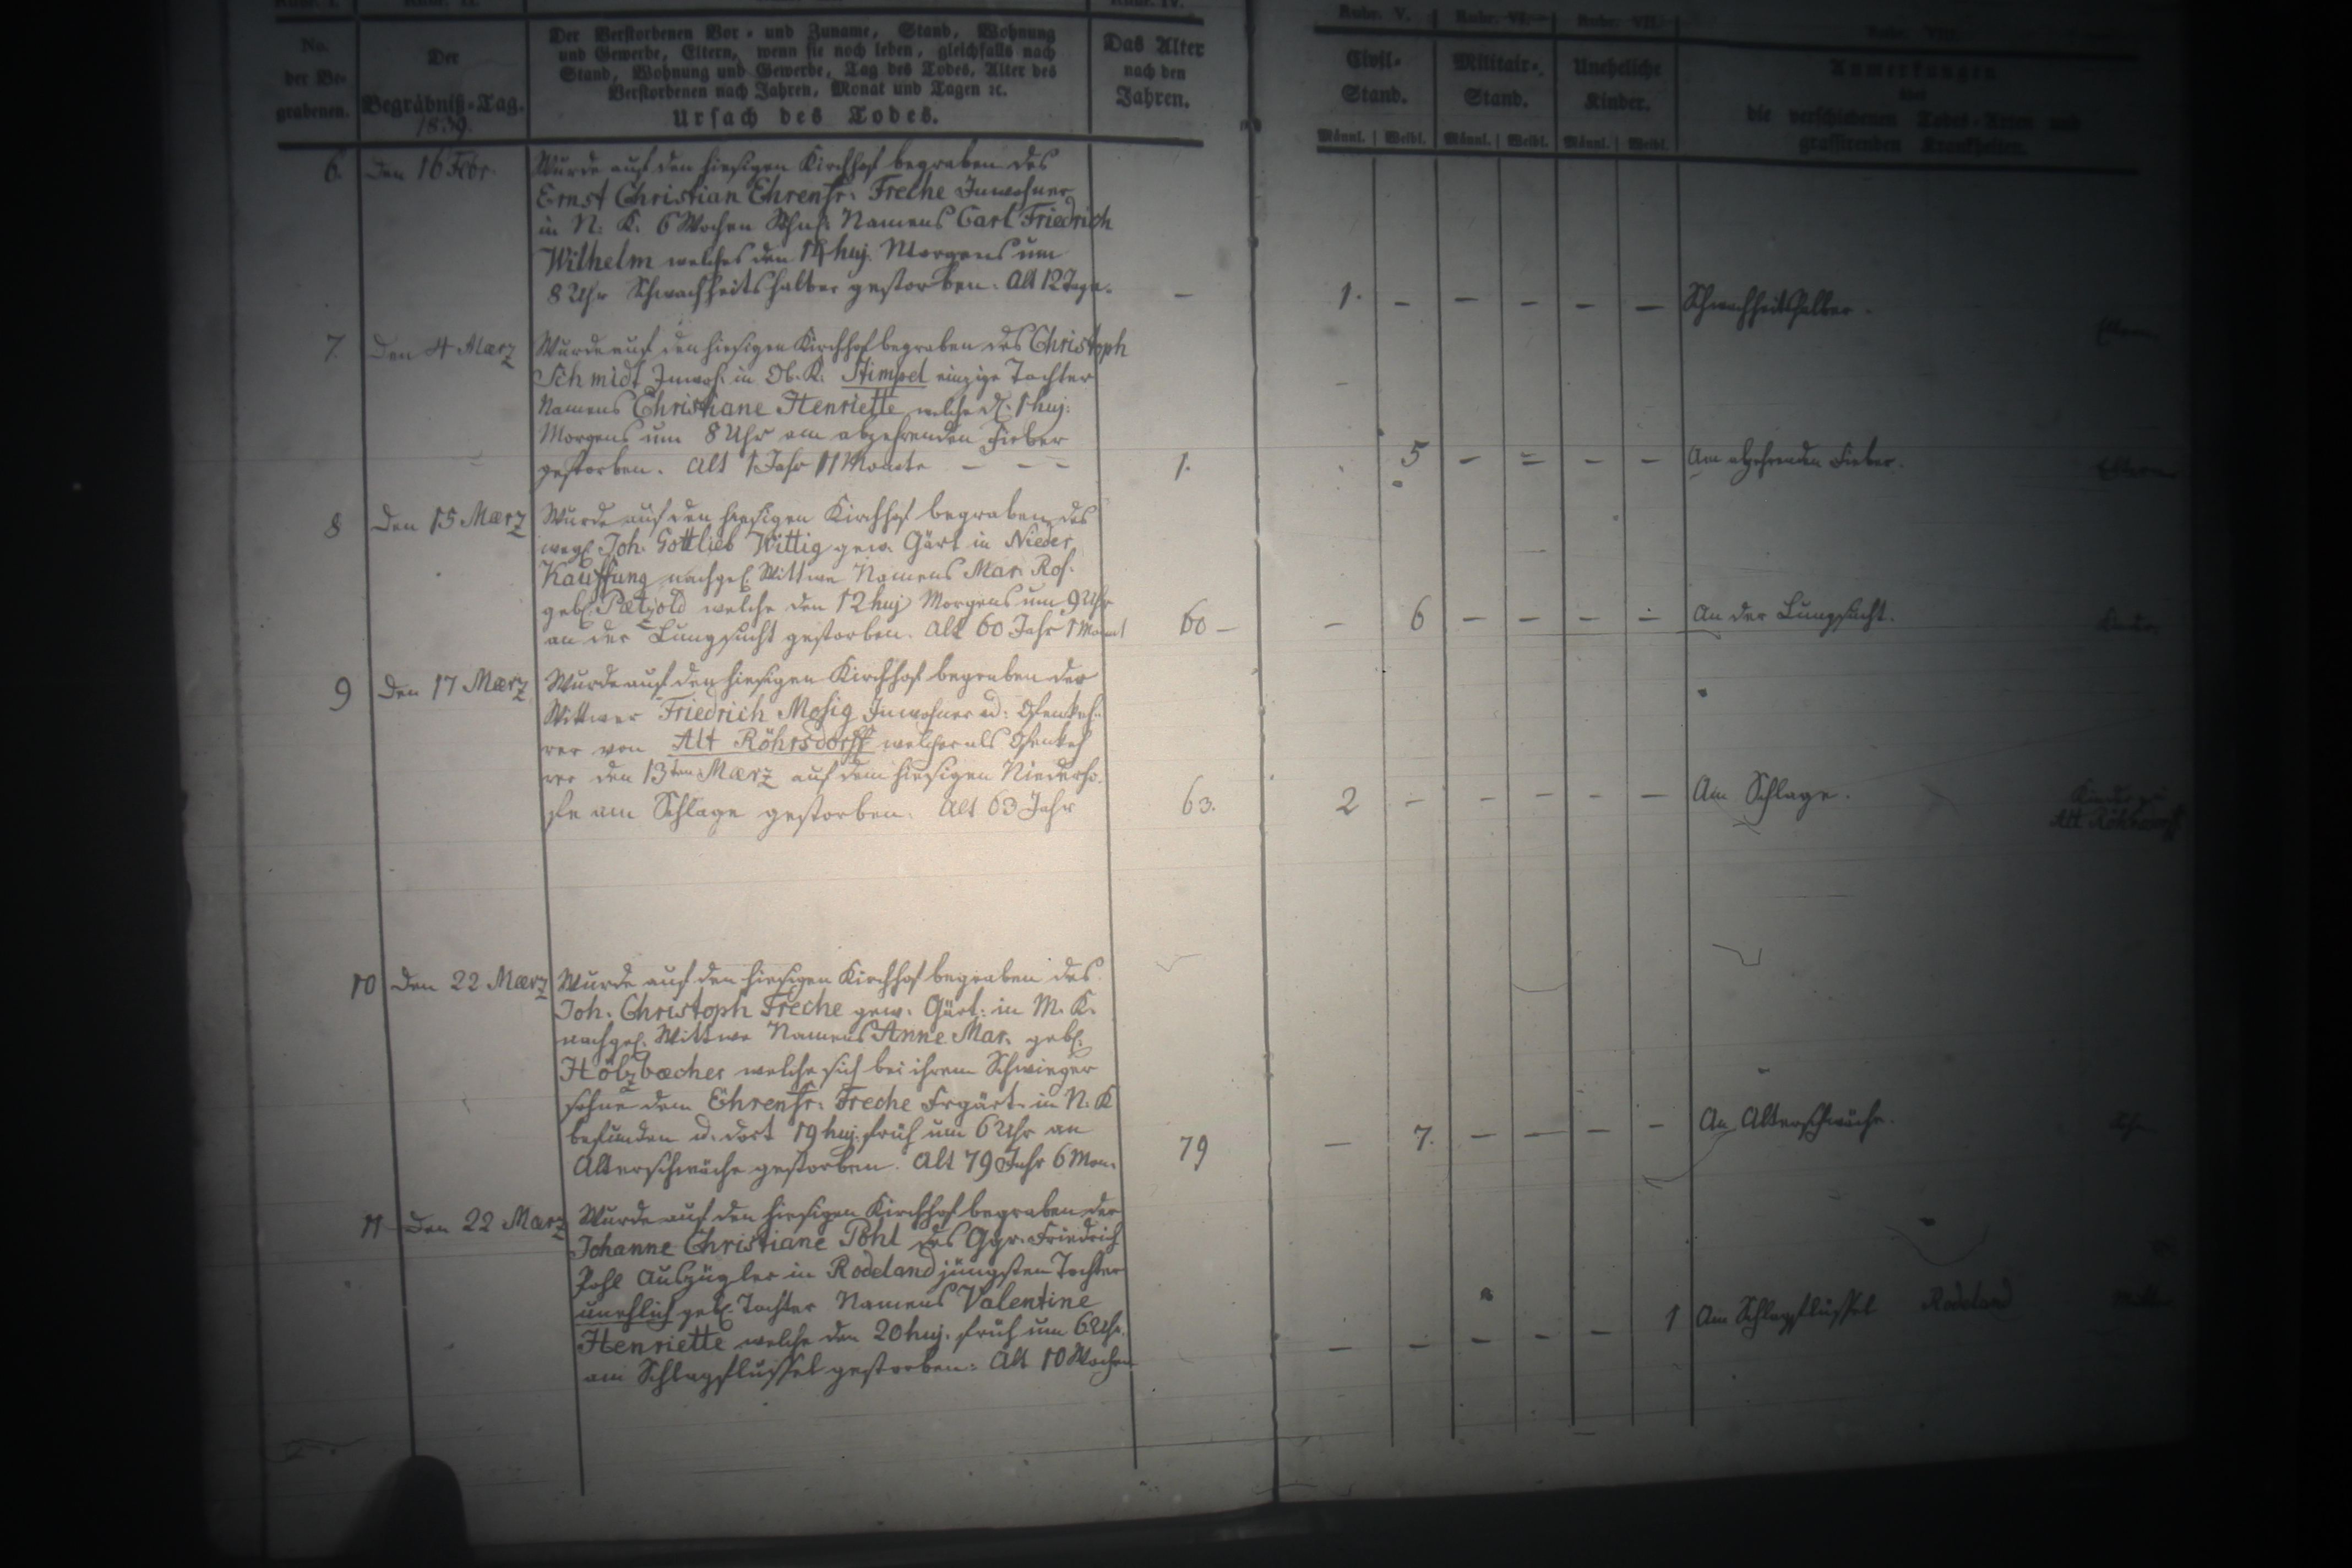 Rubr. I.
Rubr. II.
Rubr. IV.
Rubr. V.
Rubr. VI.
Rubr. VII.
Rubr. VIII.
No.
der Be-
grabenen.
Der
Begräbniß-Tag.
1839.
Der Verstorbenen Vor- und Zuname, Stand, Wohnung
und Gewerbe, Eltern, wenn sie noch leben, gleichfalls nach
Stand, Wohnung und Gewerbe, Tag des Todes, Alter des
Verstorbenen nach Jahren, Monat und Tagen ꝛc.
Ursach des Todes.
Das Alter
nach den
Jahren.
Civil-
Stand.
Männl. | Weibl.
Militair-
Stand.
Männl. | Weibl.
Uneheliche
Kinder.
Männl. | Weibl.
Anmerkungen
über
die verschiedenen Todes-Arten und
grassirenden Krankheiten.
6. Den 16 Febr.
Wurde auf den hiesigen Kirchhof begraben des
Ernst Christian Ehrenfr: Freche Inwohner
in N: K: 6 Wochen Namens Carl Friedrich
Wilhelm welches den 14 huj. Morgens um
8 Uhr Schwachheitshalber gestorben. Alt 12 Tage.
– 1. – – – – – Schwachheitshalber.
7. Den 4 Maerz
Wurde auf den hiesigen Kirchhof begraben des Christoph
Schmidt Inwoh. in Ob. K. Stimpel einzige Tochter
Namens Christiane Henriette welche d. 1 huj:
Morgens um 8 Uhr am abzehrenden Fieber
gestorben. Alt 1 Jahr 11 Monate – – –
1. 5 – = – – Am abzehrenden Fieber. Eltern
8 Den 15 Maerz
Wurde auf den hiesigen Kirchhof begraben des
weyl. Joh. Gottlieb Wittig gew. Gärt. in Nieder
Kauffung nachgel. Wittwe Namens Mar. Ros.
geb. Pætzold welche den 12 huj Morgens um 9 Uhr
an der Lungsucht gestorben. Alt 60 Jahr 1 Monat
60 – – 6 – – – – An der Lungsucht.
9 Den 17 Maerz
Wurde auf den hiesigen Kirchhof begraben der
Wittwer Friedrich Mosig Inwohner ad: Ofenkeh-
rer von Alt Röhrsdorff welcher als Ofenkeh
rer den 13ten Maerz auf dem hiesigen Niederho-
fe am Schlage gestorben. Alt 63 Jahr
63. 2 – – – – – Am Schlage.
Alt Röhrsdorff
10 Den 22 Maerz
Wurde auf den hiesigen Kirchhof begraben des
Joh. Christoph Freche gew. Gärt: in M. K.
nachgel. Wittwe Namens Anne Mar. geb.
Hölzbæcher welche sich bei ihrem Schwieger
sohne dem Ehrenfr: Freche Frgärt. in N: K
befunden u. dort 19 huj. früh um 6 Uhr an
Alterschwäche gestorben. Alt 79 Jahr 6 Mon.
79 – 7. – – – – An Alterschwäche.
11 Den 22 Maerz
Wurde auf den hiesigen Kirchhof begraben der
Johanne Christiane Pohl des Ggr. Friedrich
Pohl Auszügler in Rodeland jüngsten Tochter
unehlich geb. Tochter Namens Valentine
Henriette welche den 20 huj. früh um 6 Uhr
am Schlagflussel gestorben: Alt 10 Wochen
– – – – – 1 Am Schlagflussel Rodeland